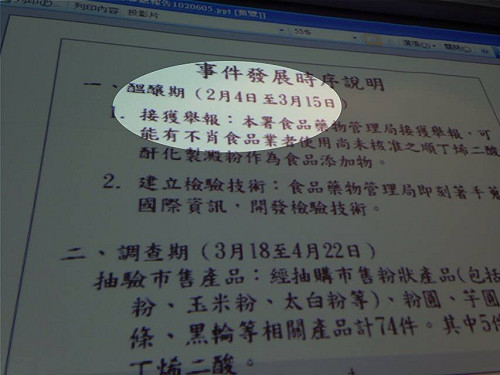 列印內容：投影片
報告1020605.ppt [預覽]
55%
選項(O)
關閉(C)
事件發展時序說明
一、醞釀期（2月4日至3月15日
1. 接獲舉報：本署食品藥物管理局接獲舉報，可
能有不肖食品業者使用尚未核准之順丁烯二酸
酐化製澱粉作為食品添加物。
2. 建立檢驗技術：食品藥物管理局即刻著手蒐
國際資訊，開發檢驗技術。
二、調查期（3月18至4月22日）
抽驗市售產品：經抽購市售粉狀產品(包括
粉、玉米粉、太白粉等)、粉圓、芋圓
條、黑輪等相關產品計74件。其中5件
丁烯二酸。